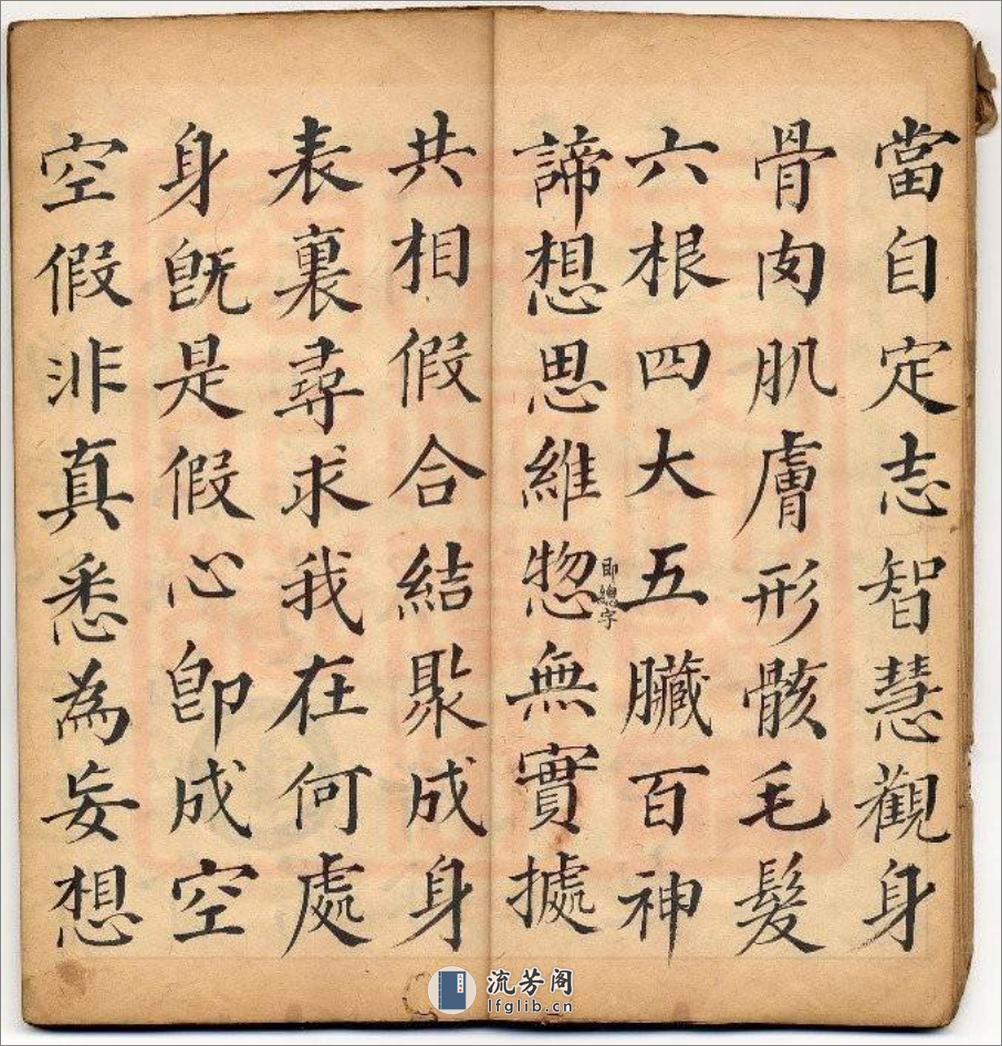 當自定志智慧觀身
骨肉肌膚形骸毛髮
六根四大五臟百神
諦想思維惣無實據
即總字
共相假合結聚成身
表裏尋求我在何處
身旣是假心卽成空
空假非真悉為妄想
流芳阁
lfglib.cn